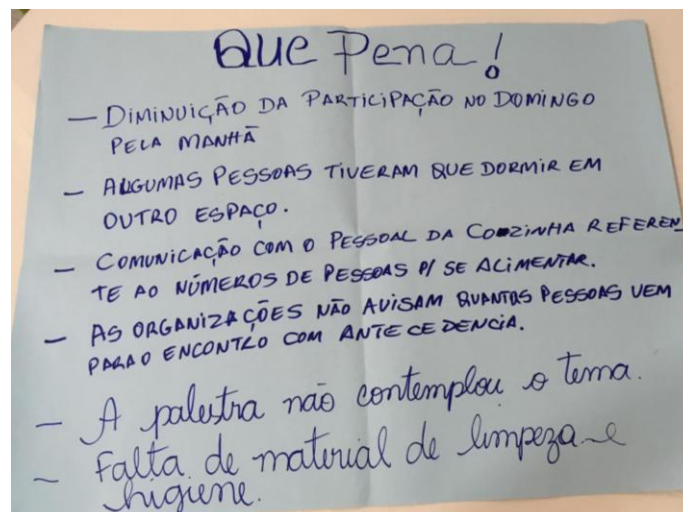 Que Pena!
— DIMINUIÇÃO DA PARTICIPAÇÃO NO DOMINGO
PELA MANHÃ
— ALGUMAS PESSOAS TIVERAM QUE DORMIR EM
OUTRO ESPAÇO.
— COMUNICAÇÃO COM O PESSOAL DA COZINHA REFEREN
TE AO NÚMEROS DE PESSOAS P/ SE ALIMENTAR.
— AS ORGANIZAÇÕES NÃO AVISAM QUANTAS PESSOAS VEM
PARA O ENCONTRO COM ANTECEDENCIA.
— A palestra não contemplou o tema.
— Falta de material de limpeza e
higiene.